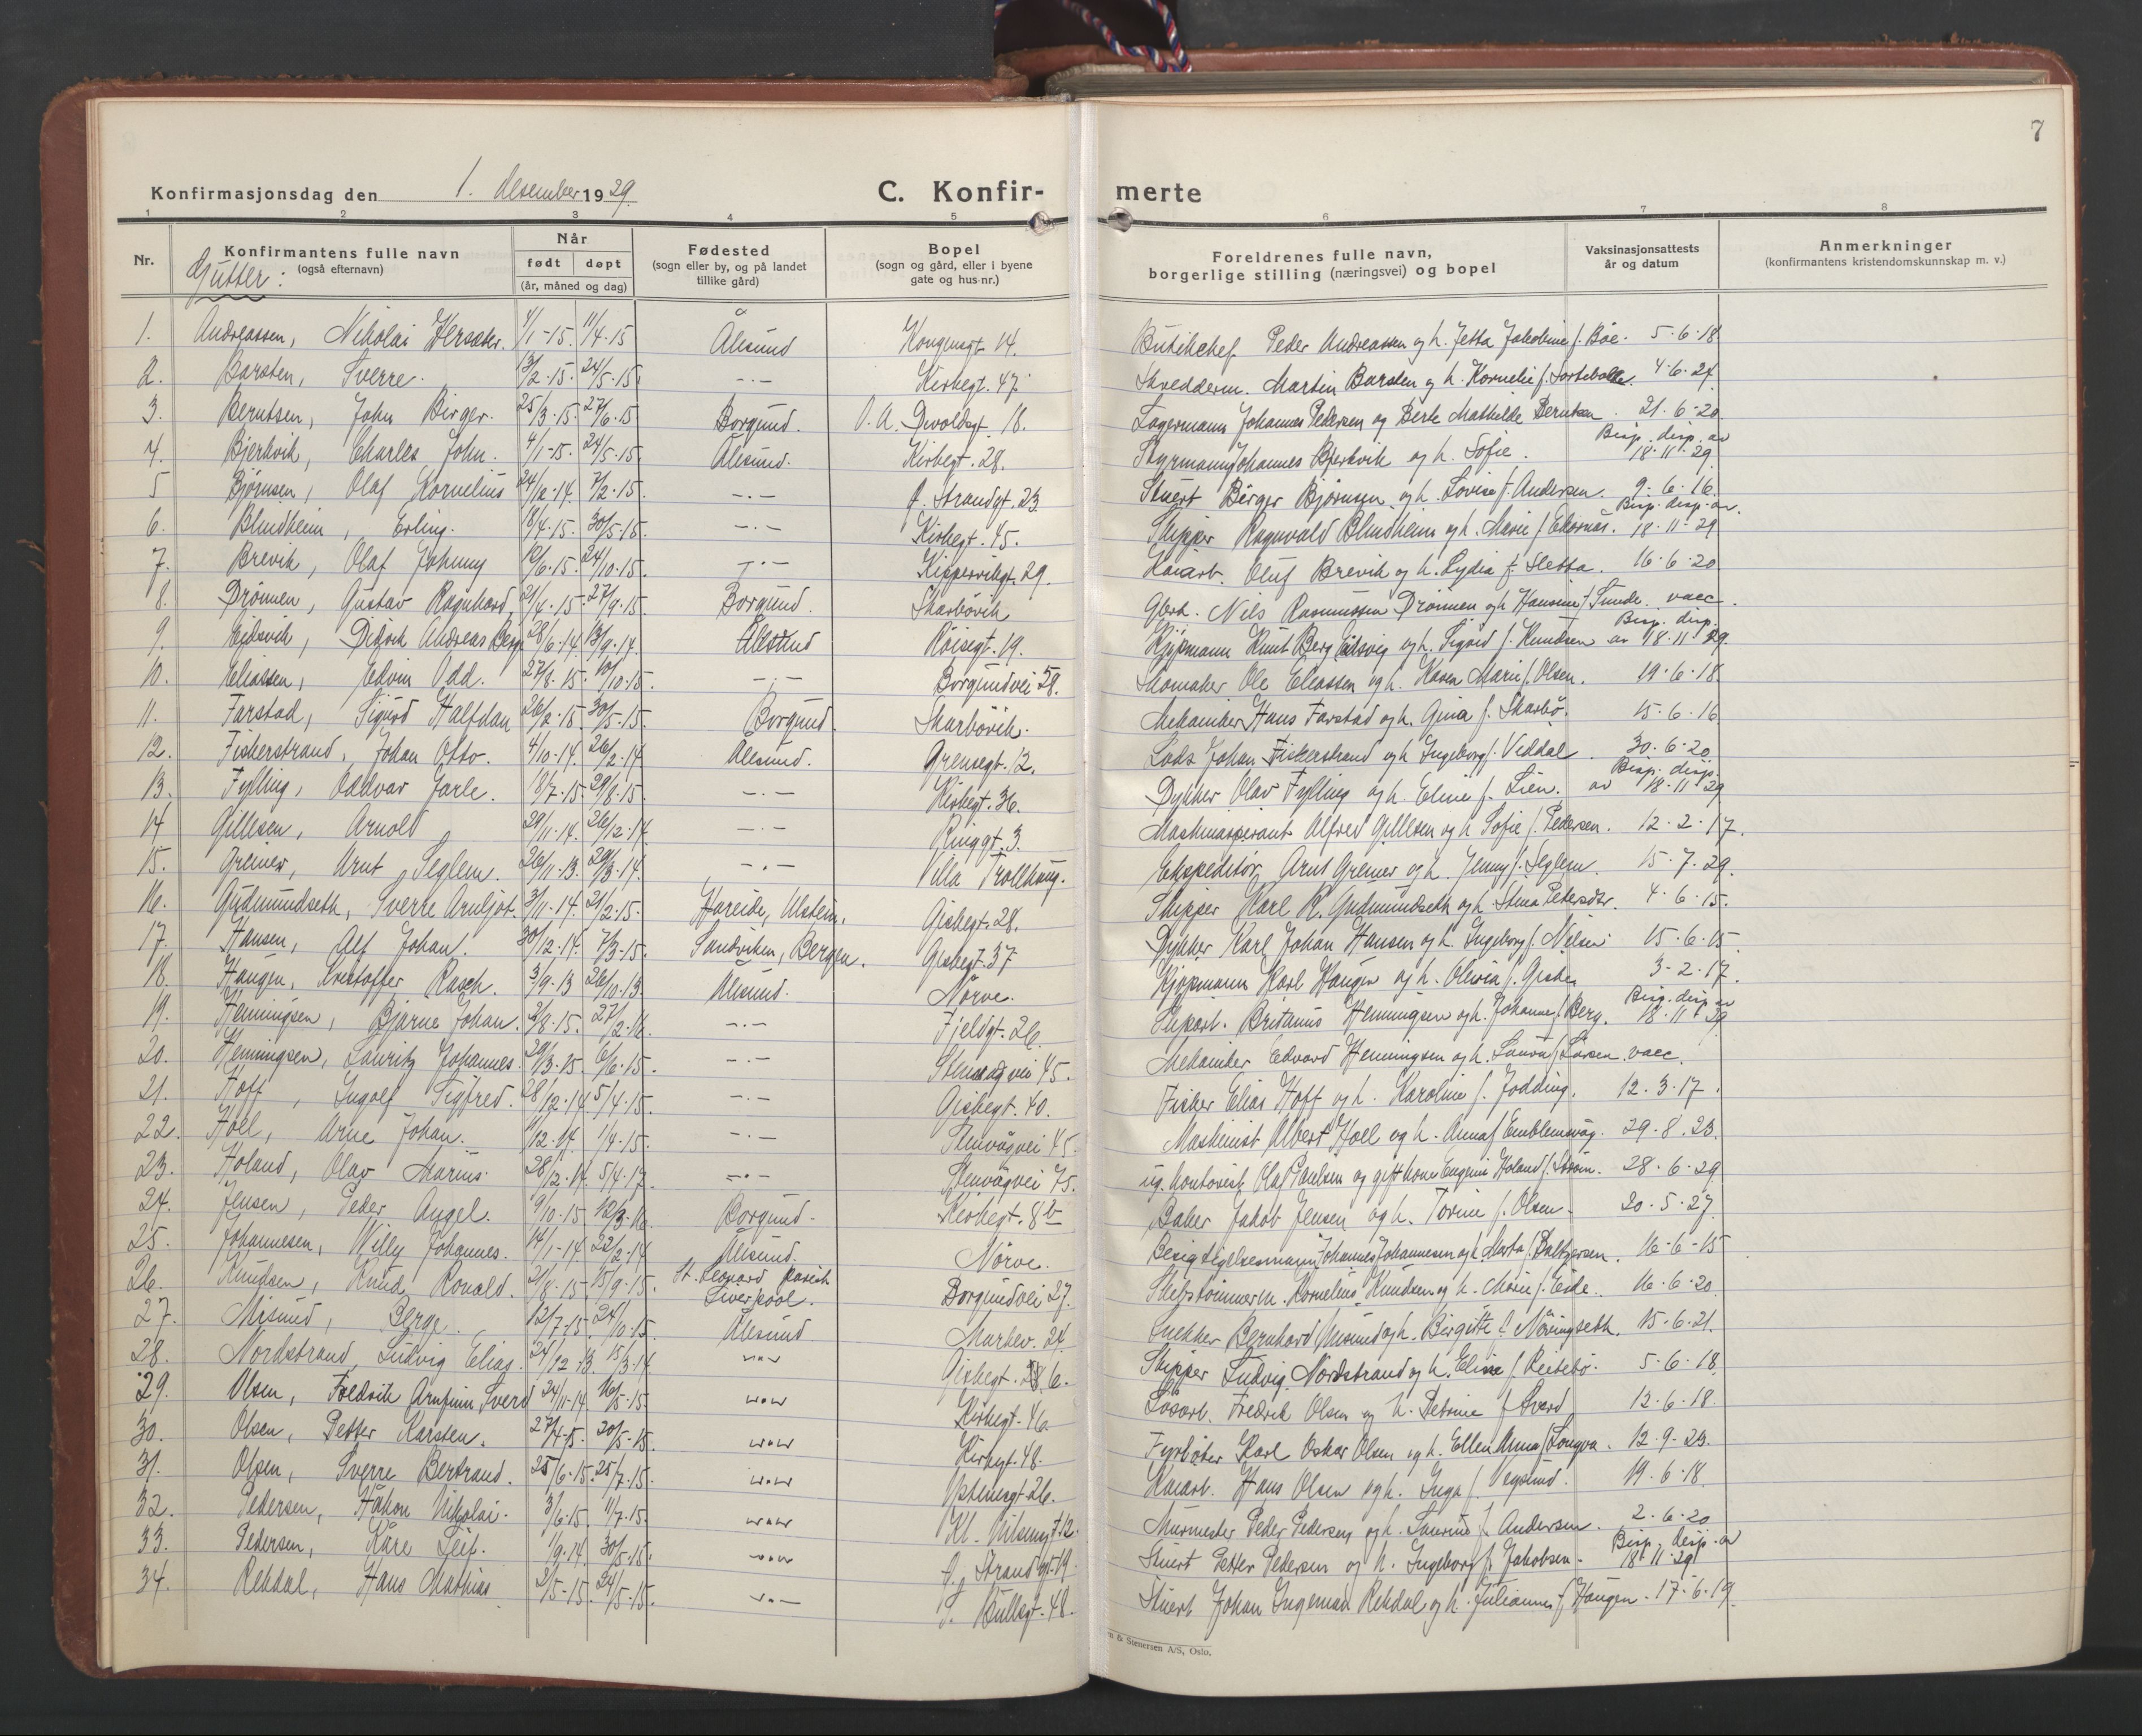 7
Konfirmasjonsdag den 1. desember 1929.
C. Konfir- merte
1 2 3 4 5 6 7 8
Nr.
Konfirmantens fulle navn
(også efternavn)
Når
født døpt
(år, måned og dag)
Fødested
(sogn eller by, og på landet
tillike gård)
Bopel
(sogn og gård, eller i byene
gate og hus-nr.)
Foreldrenes fulle navn,
borgerlige stilling (næringsvei) og bopel
Vaksinasjonsattests
år og datum
Anmerkninger
(konfirmantens kristendomskunnskap m. v.)
Gutter:
1. Andreassen, Nikolai 4/1-15. 11/4-15 Ålesund Kongensgt. 14. Butikchef Peder Andreassen og h. Jetta Jakobine f. Böe. 5-6-18.
2. Barsten, Sverre. 13/2-15. 24/5-15. -.- Kirkegt. 47. Skredderm. Martin Barsten og h. Kornelie f. 4-6-27.
3. Berntsen, John Birger. 25/3-15. 27/6-15 Borgund. O. A. Devoldsgt. 18. Lagermann Johannes Pedersen og Berte Mathilde Berntsen. 21-6-20.
4. Bjerkvik, Charles John. 4/1-15. 24/5-15. Ålesund. Kirkegt. 28. Styrmann Johannes Bjerkvik og h. Sofie. Bisp. disp. av 18-11-29.
5 Björnsen, Olaf Kornelius 24/12-14. 7/2-15. -.- Ö. Strandgt. 23. Stuert Birger Björnsen og h. Lovise f. Andersen. 9-6-16.
6. Blindheim, Erling. 18/4-15. 30/5-15. -.- Kirkegt. 45. Skipper Ragnvald Blindheim og h. Marie f. Ekornås. Bisp. disp. av. 18-11-29
7. Brevik, Olaf Johnny 12/6-15. 24/10-15. -.- Kipperviktgt. 29. Kaiarb. Oluf Brevik og h. Lydia f. Sletta. 16-6-20
8. Drönnen, Gustav Ragnhard, 21/4-15. 27/9-15. Borgund. Skarbövik Gbrk. Nils Rasmussen Drönnen og h. Hansine f. Sunde. vacc.
9. Eidsvik, Didrik Andreas Berg 28/6-14. 13/9-14. Ålesund Röisegt. 19. Kjöpmann Knut Berg Eidsvig og h. Sigrid f. Knudsen Bisp. disp. av 18-11-29.
10. Eliassen, Edvin Odd. 27/8-15. 10/10-15. -.- Borgundvei 58. Skomaker Ole Eliassen og h. Karen Marie f. Olsen. 19-6-18.
11. Farstad, Sigurd Halfdan 26/2-15. 30/5-15. Borgund. Skarbövik. Mekaniker Hans Farstad og h. Gina f. Skarbö. 15-6-16
12. Fiskerstrand, Johan Otto. 4/10-14. 26/2-14 Ålesund. Grensegt. 12. Lods Johan Fiskerstrand og h. Ingeborg f. Viddal. 30-6-20
13. Fylling, Oddvar Jarle. 18/7-15. 29/8-15. -.- Kirkegt. 36. Dykker Olav Fylling og h. Eline f. Lien. Bisp. disp. av 18-11-29
14 Gillesen, Arnold 29/11-14. 26/12-14. -.- Ringgt. 3. Maskinaspirant Alfred Gillesen og h. Sofie f. Pedersen. 12-2-17.
15. Greiner, Arnt Seglem. 26/11-13. 29/3-14. -.- Villa Trollhaug. Ekspeditör Arnt Greiner og h. Jenny f. Seglem. 15-7-29.
16. Gudmundseth, Sverre Arnljot. 3/11-14. 21/2-15. Hareide, Ulstein. Giskegt. 28. Skipper Karl K. Gudmundseth og h. Stina Petersdtr. 4-6-15.
17. Hansen, Alf Johan. 30/12-14. 7/3-15. Sandviken, Bergen. Giskegt. 37 Dykker Karl Johan Hansen og h. Ingeborg f. Nilsen. 15-6-15.
18. Haugen, Kristoffer Rasch. 3/9-13 26/10-13 Ålesund. Nörve. Kjöpmann Karl Haugen og h. Olivia f. Giske. 3-2-17.
19. Henningsen, Bjarne Johan. 2/8-15. 27/2-16. -.- Fjeldgt. 26. Britanus Henningsen og h. Johanne f. Berg. Bisp. disp. av 18-11-29
20. Henningsen, Lauritz Johannes. 29/3-15. 6/6-15. -.- Stenvågvei 45. Mekaniker Edvard Henningsen og h. Laura f. Larsen. vacc.
21. Hoff, Ingolf Sigfred. 28/12-14. 5/4-15. -.- Giskegt. 40. Fisker Elias Hoff og h. Karoline f. Jodding. 12-3-17.
22. Hoel, Arne Johan. 11/12-14. 1/4-15. -.- Stenvågvei 45. Maskinist Albert Hoel og h. Anna f. Emblemsvåg. 29-8-23.
23. Holand, Olav Marius. 28/12-14. 5/4-17. -.- Stenvågvei 75. ug. Kontorist Olaf Paulsen og gift kone Eugenie Holand f. 28-6-29.
24. Jensen, Peder Angel. 9/10-15. 12/3-16. Borgund. Kirkegt. 8b Baker Jakob Jensen og h. Torine f. Olsen. 20-5-27.
25. Johannesen, Willy Johannes. 14/1-14. 22/2-14 Ålesund. Nörve. Besigtigelsesmann Johannes Johannesen og h. Marta f. Dalbjersen. 16-6-15.
26. Knudsen, Knud Ronald. 21/8-15. 15/9-15. St. Leonard parish Liverpool. Borgundvei 27. Skibstömmerm. Kornelius Knudsen og h. Marie f. Eide. 16-6-20.
27. Misund, Berge. 12/7-15. 24/10-15. Ålesund. Murbev. 24. Snekker Bernhard Misund og h. Birgitte f. Nöringseth. 15-6-21.
28. Nordstrand, Ludvig Elias. 24/12-13. 15/3-14 -.- Giskegt. 6. Skipper Ludvig Nordstrand og h. Eline f. Reitebö. 5-6-18.
29. Olsen, Fredrik Arnfinn Sverd 24/11-14. 16/5-15. -.- Kirkegt. 46 Lösarb. Fredrik Olsen og h. Petrine f. Sverd. 12-6-18.
30. Olsen, Petter Karsten. 27/4-15. 20/5-15. -.- Kirkegt. 48. Fyrböter Karl Oskar Olsen og h. Ellen Anna f. Longva. 12-9-23.
31. Olsen, Sverre Bertrand. 25/6-15. 25/7-15. -.- Ystenesgt 26. Kaiarb. Hans Olsen og h. Inga f. Vegsund. 19-6-18.
32. Pedersen, Håkon Nikolai. 3/6-15. 11/7-15. -.- Kl. Nilsensgt 12. Murmester Peder Pedersen og h. Laurine f. Andersen. 2-6-20
33. Pedersen, Kåre Leif. 1/9-14. 30/5-15. -.- Ö. Strandgt. 19. Stuert Petter Pedersen og h. Ingeborg f. Jakobsen. Bisp. disp. av 18-11-29
34. Rekdal, Hans Mathias 2/5-15. 24/5-15. -.- S. Bullsgt. 48. Stuert Johan Ingeman Rekdal og h. Julianne f. Haugen. 17-6-19.
& Stenersen A/S, Oslo.